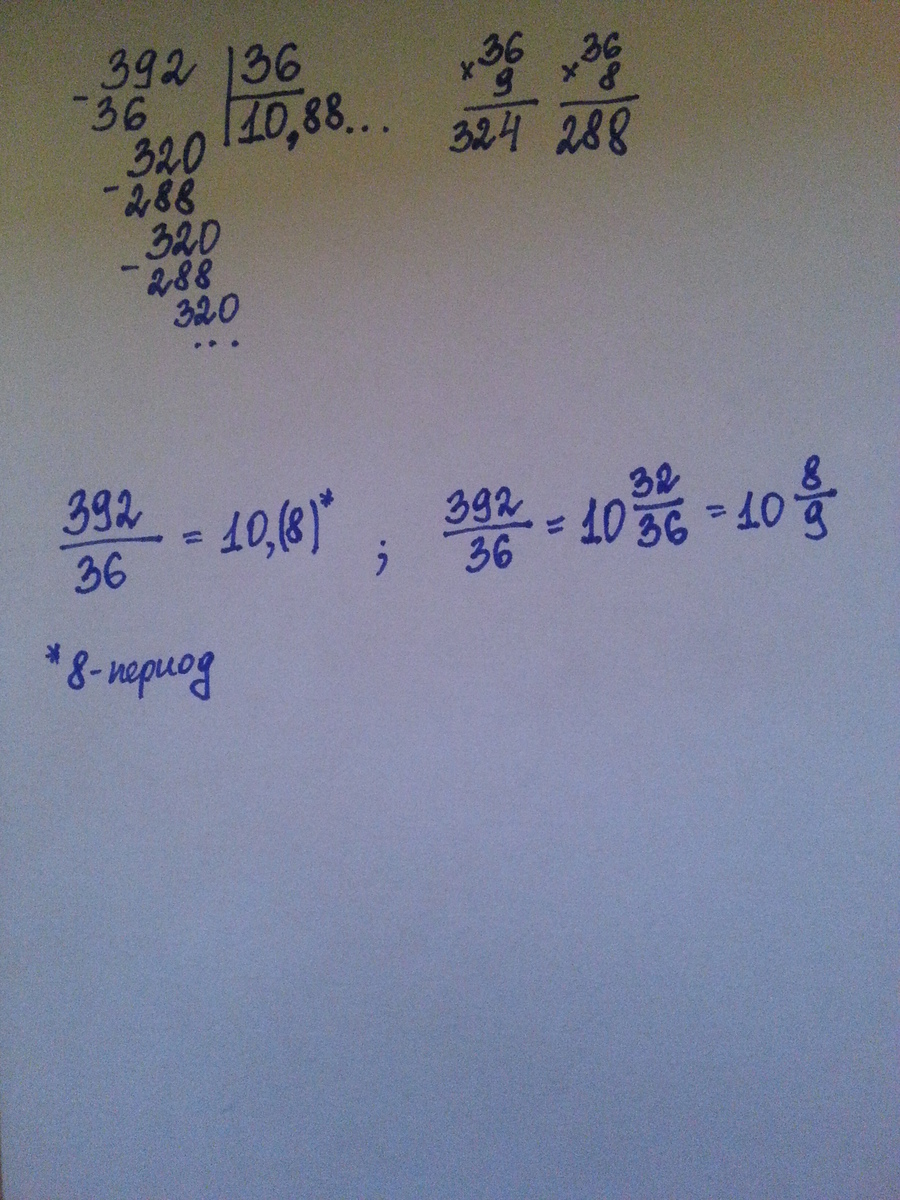 392 | 36
- 36 | 10,88...
320
- 288
320
- 288
320
...
36
× 9
324
36
× 8
288
392/36 = 10,(8)* ; 392/36 = 10 32/36 = 10 8/9
* 8-период